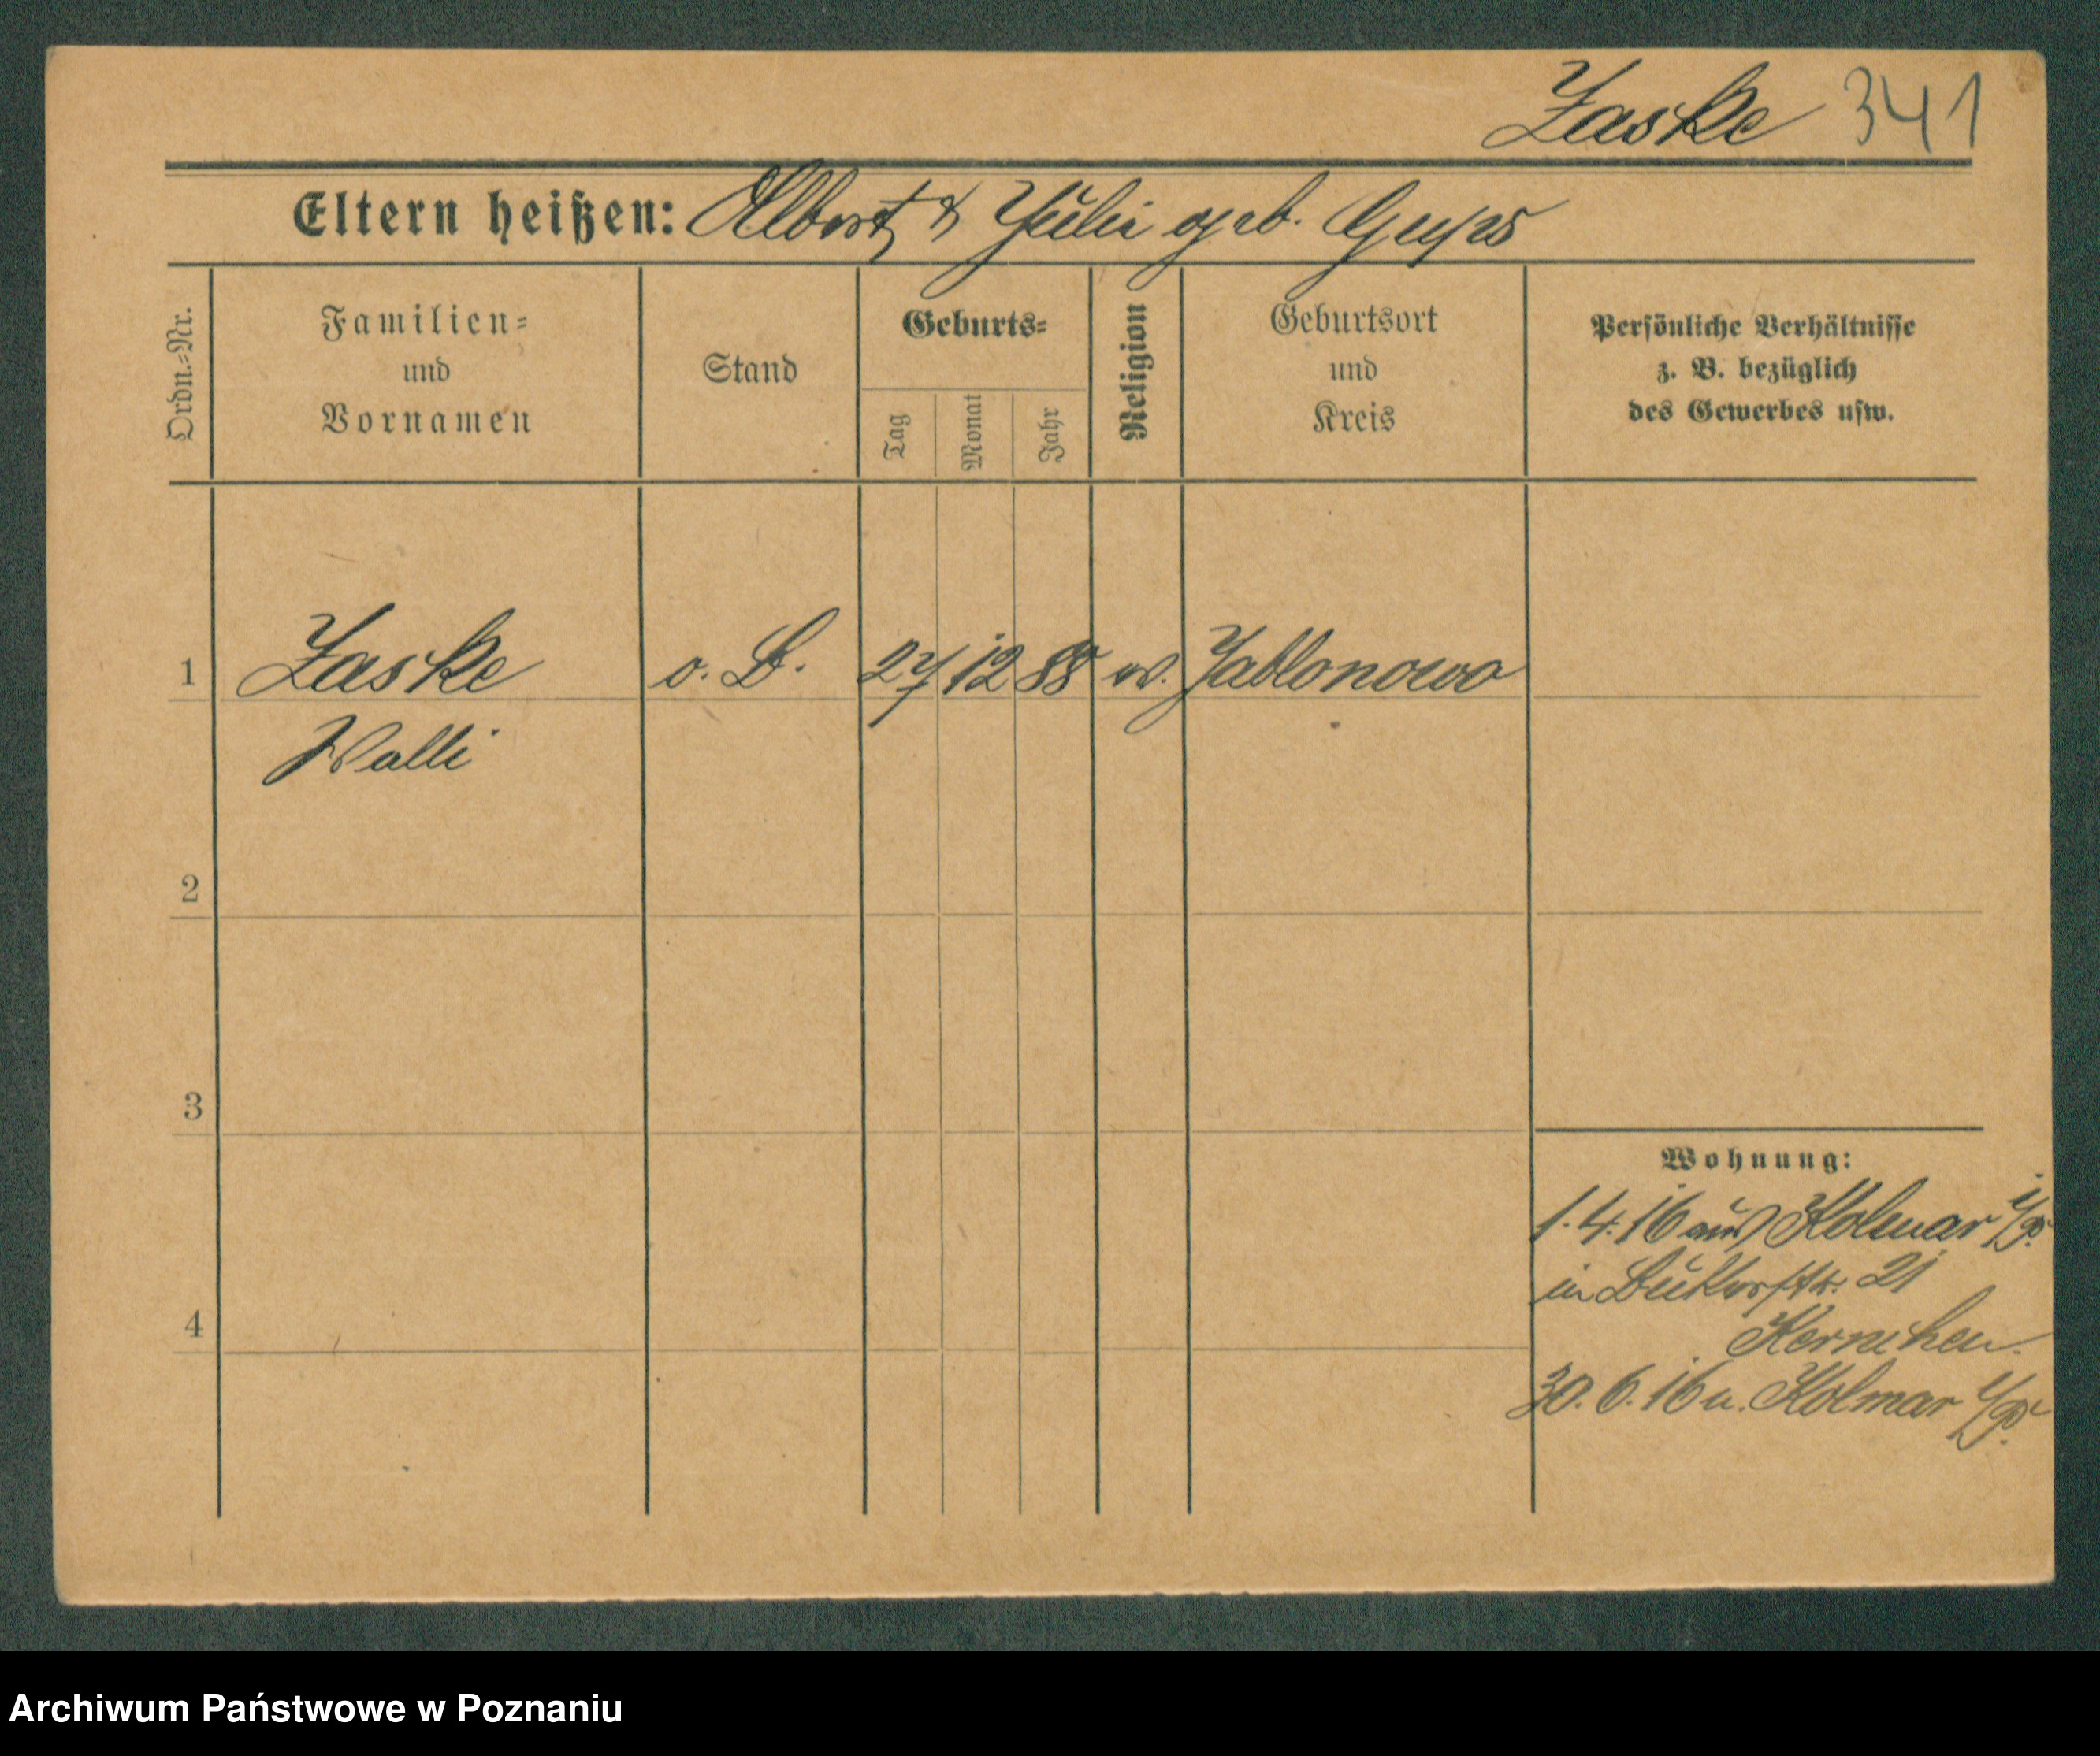 Zaske 341
Eltern heißen: Albert & Julie geb.
Ordn.=Nr.
Familien=
und
Vornamen
Stand
Geburts=
Tag
Monat
Jahr
Religion
Geburtsort
und
Kreis
Persönliche Verhältnisse
z. B. bezüglich
des Gewerbes usw.
1 Zaske o. B. 27 12 88 ev. Jablonowo
Walli
2
3
4
Wohnung:
1.4.16 aus Kolmar i/P.
in 21
30.6.16 n. Kolmar i/P.
Archiwum Państwowe w Poznaniu